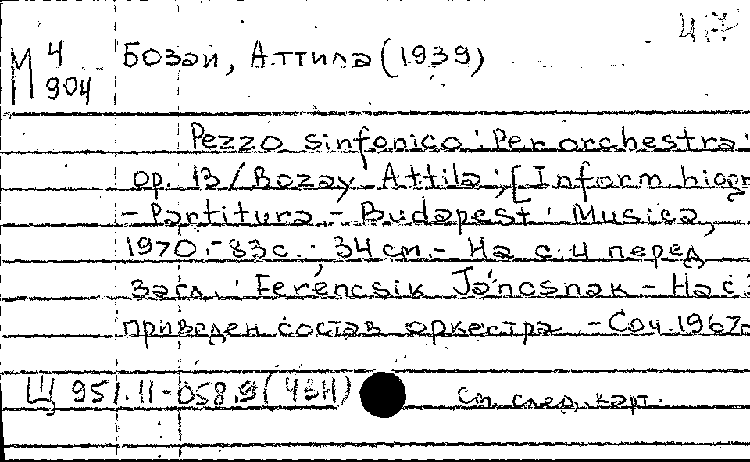 47
М 4
904
Бозай, Аттила (1939)
Pezzo sinfonico: Per orchestra:
op. 13 / Bozay Attila; [Inform biogr
- Partitura. - Budapest: Musica,
1970. - 83 с.; 34 см. - На с. 4 перед
загл.: Ferencsik Jánosnak - На с 3
приведен состав оркестра - Соч. 1967г
Щ 951.11-058.9 (4ЗН)
См. след. карт.